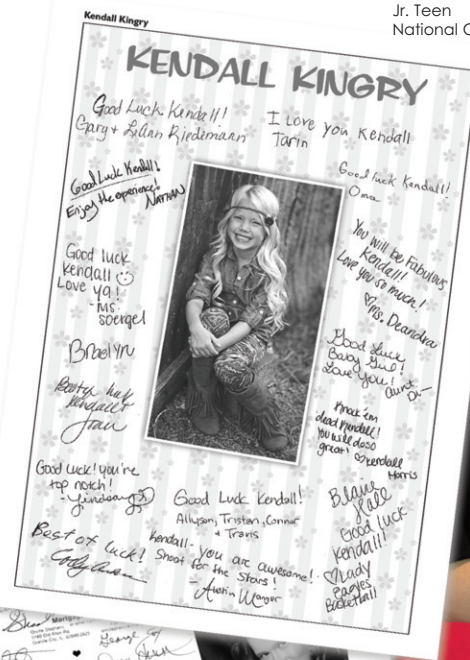 Jr. Teen
National
Kendall Kingry
KENDALL KINGRY
Good Luck Kendall!
Gary + Lilian Riedemann
I Love you Kendall
Tarin
Good luck Kendall!
Oma
Good Luck Kendall!
Enjoy the experience!
NATHAN
You will be Fabulous
Kendall!
Love you so much!
Ms. Deandra
Good luck
Kendall
Love ya!
-Ms.
Soergel
Braelyn
Good Luck
Baby Girl!
Love You!
Aunt
Di-
Knock 'em
dead Kendall!
You will do so
great! Kendall
Morris
Kendall
Good Luck! you're
top notch!
-Lindsay
Good Luck Kendall!
Allyson, Tristan, Connor
+ Travis
Blaire
Hale
Good Luck
Kendall!
Lady
Eagles
Basketball
Best of luck!
Kendall - you are awesome!
Shoot for the Stars!
- Austin
George